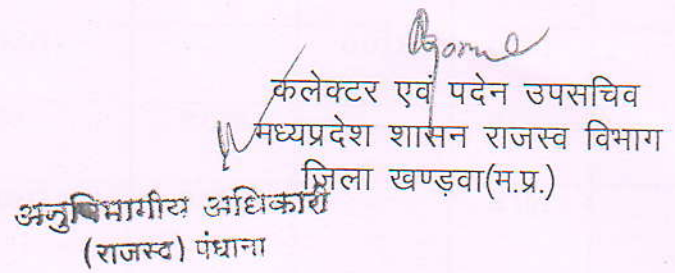 कलेक्टर एवं पदेन उपसचिव
मध्यप्रदेश शासन राजस्व विभाग
जिला खण्डवा(म.प्र.)
अनुविभागीय अधिकारी
(राजस्व) पंधाना